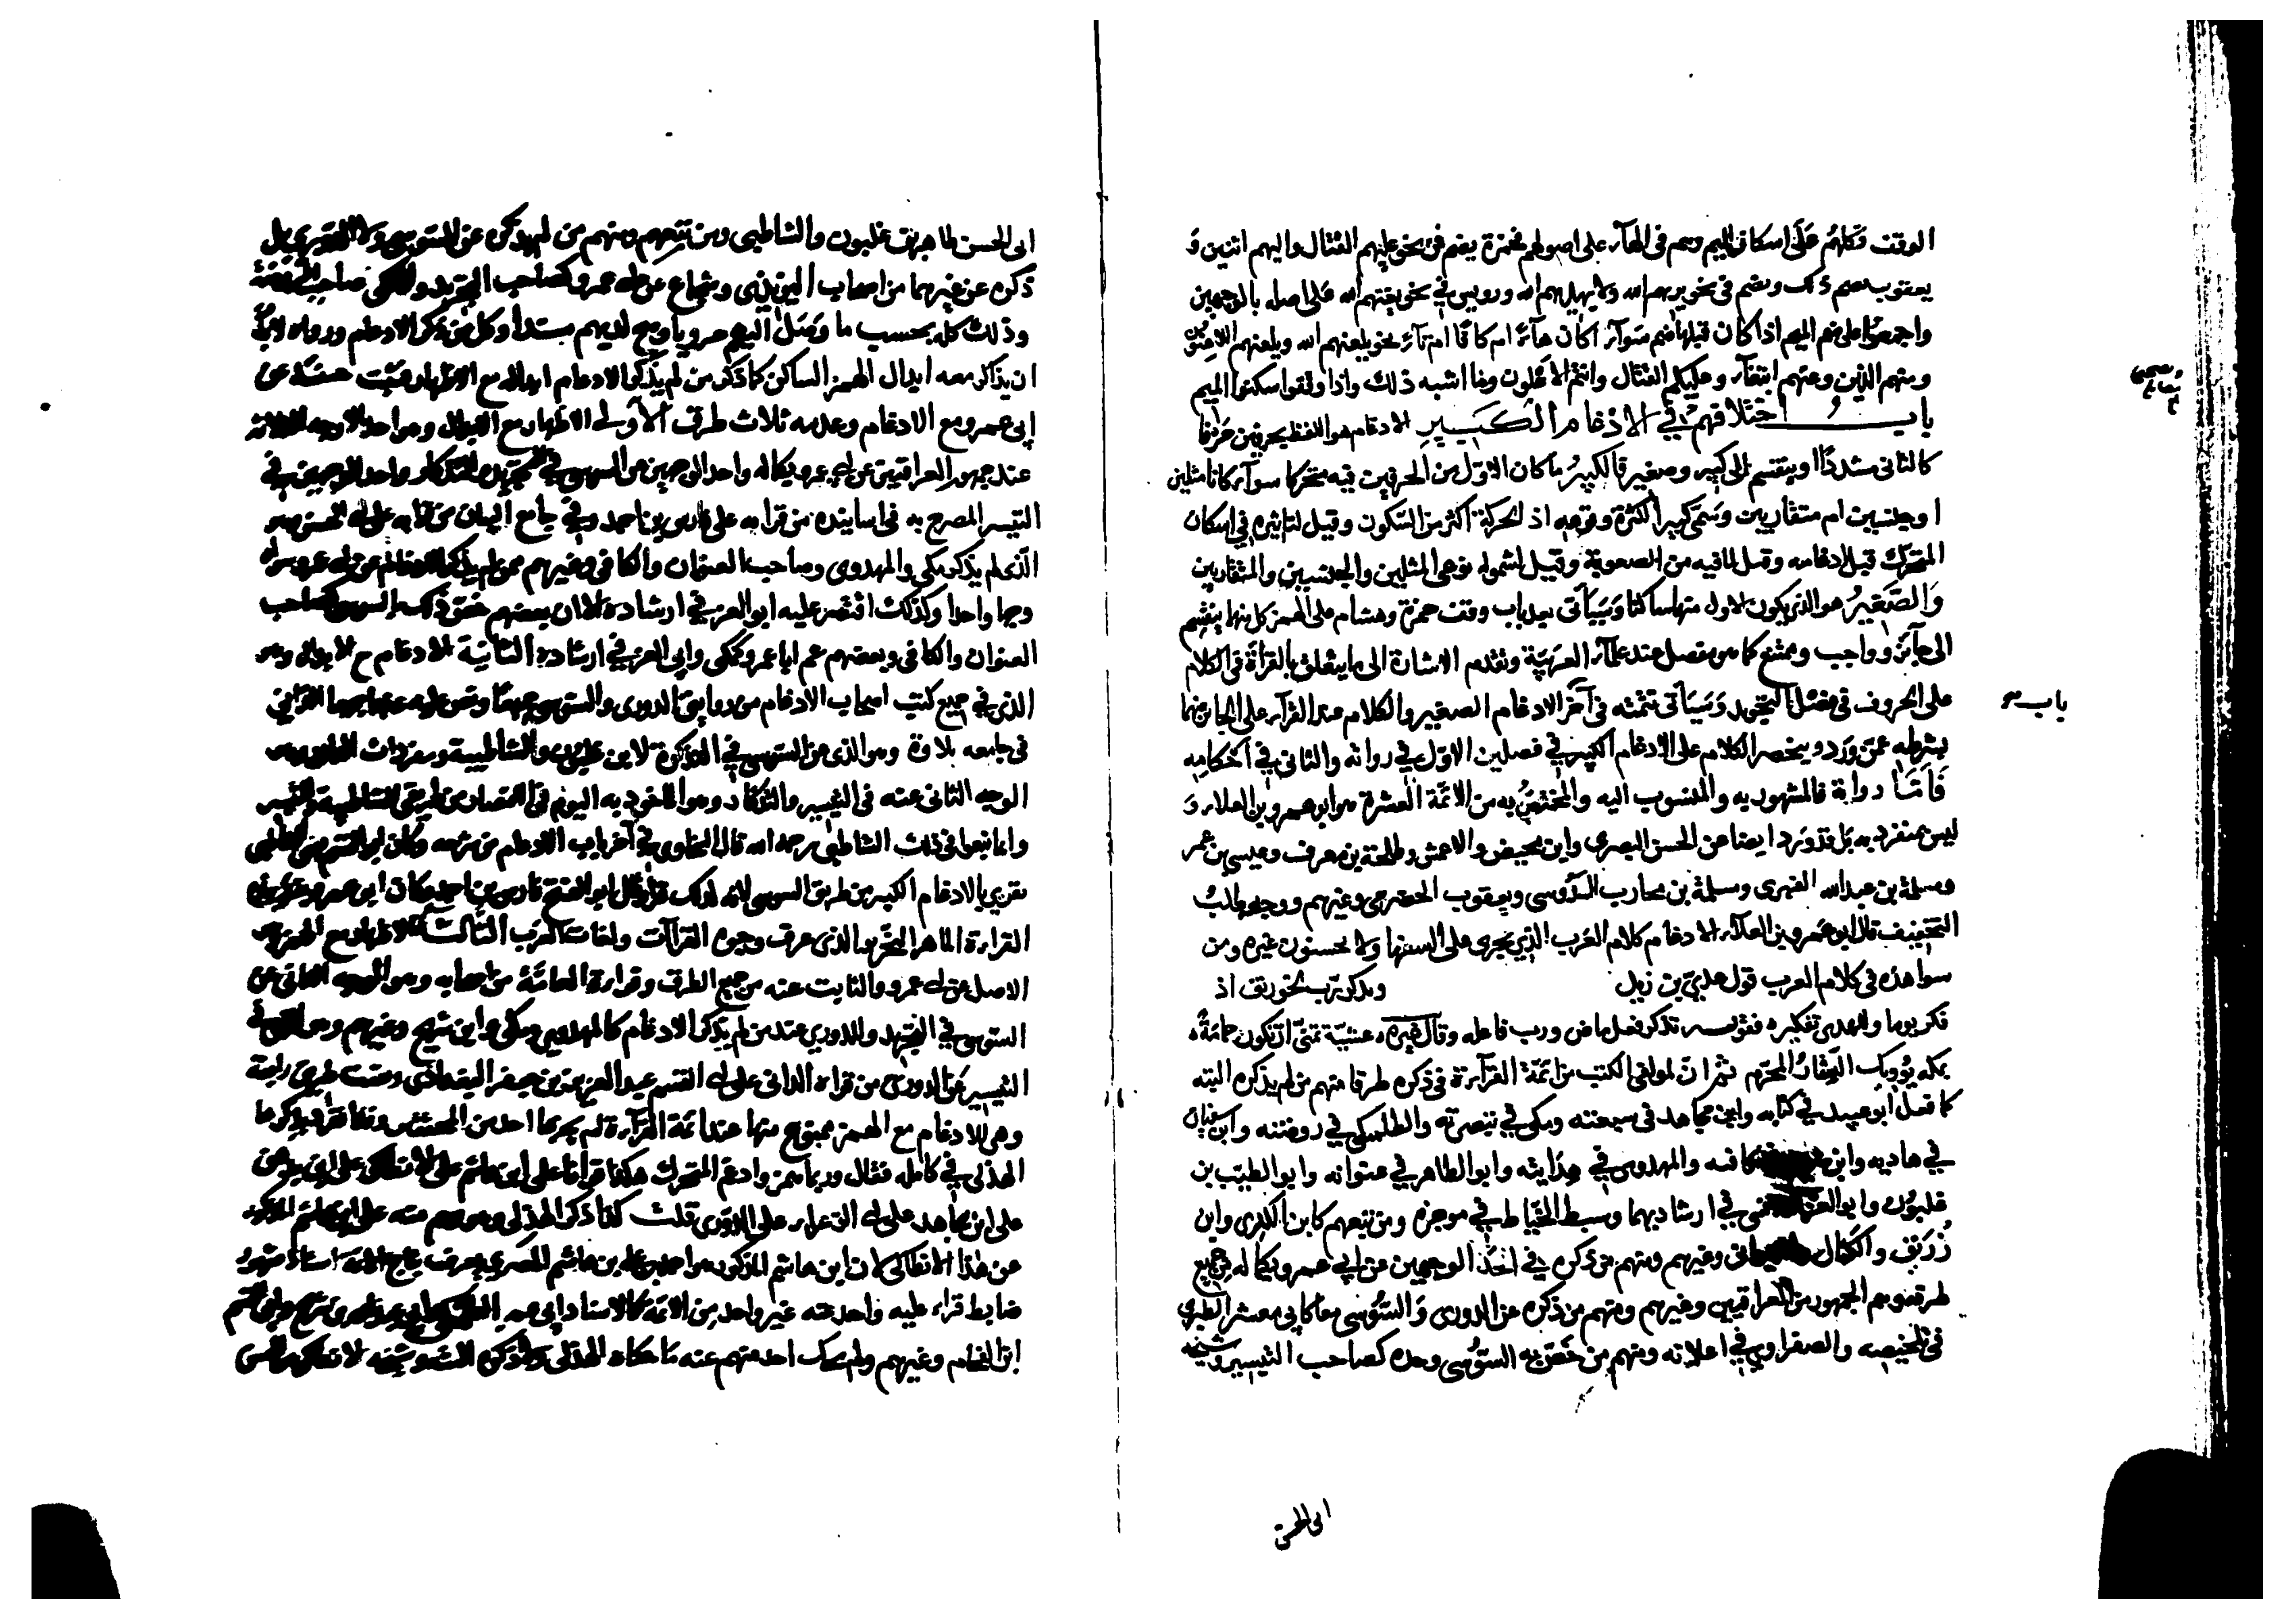 الوقف وكلهم على اسكان الميم وهم في الهاء على اصولهم فحمزة يضم في نحو عليهم القتال واليهم اثنين و
يعقوب يضم ذلك ويضم في نحو يريهم الله ولا يهديهم الله ورويس في نحو يغنهم الله على اصله بالوجهين
واجمعوا على ضم الميم اذا كان قبلها ضم سواء اكان هاء ام كافا ام تاء نحو يلعنهم الله ويلعنهم اللاعنون
ومنهم الذين وعنهم ابتغاء وعليكم القتال وانتم الاعلون وما اشبه ذلك واذا وقفوا سكنوا الميم
باب اختلافهم في الادغام الكبير الادغام هو اللفظ بحرفين حرفا
كالثاني مشددا وينقسم الى كبير وصغير فالكبير ما كان الاول من الحرفين فيه متحركا سواء كانا مثلين
او جنسين ام متقاربين وسمي كبيرا لكثرة وقوعه اذ الحركة اكثر من السكون وقيل لتاثيره في اسكان
المتحرك قبل ادغامه وقيل لما فيه من الصعوبة وقيل لشموله نوعي المثلين والجنسين والمتقاربين
والصغير هو الذي يكون الاول منهما ساكنا وسياتي بعد باب وقف حمزة وهشام على الهمز وكل منهما ينقسم
الى جائز وواجب وممتنع كما هو مفصل عند علماء العربية وتقدم الاشارة الى ما يتعلق بالقراءة في الكلام
على الحروف في فصل التجويد وسياتي تتمته في آخر الادغام الصغير والكلام عند القراء على الجائز منهما
بشرطه عمن ورد وينحصر الكلام على الادغام الكبير في فصلين الاول في رواته والثاني في احكامه
فاما رواته فالمشهور به والمنسوب اليه والمختص به من الائمة العشرة هو ابو عمرو بن العلاء و
ليس بمنفرد به بل قد ورد ايضا عن الحسن البصري وابن محيصن والاعمش وطلحة بن مصرف وعيسى بن عمر
ومسلمة بن عبد الله الفهري ومسلمة بن محارب السدوسي ويعقوب الحضرمي وغيرهم ووجهه طلب
التخفيف قال ابو عمرو بن العلاء الادغام كلام العرب الذي يجري على السنتها ولا يحسنون غيره ومن
شواهده في كلام العرب قول عدي بن زيد وتذكر رب الخورنق اذ
فكر يوما وللهدى تفكير
تذكر فعل ماض ورب فاعله وقال غيره عشية تمنى ان تكون حمامة
بمكة يؤويك الستار المحرم ثم ان لمؤلفي الكتب من ائمة القراءة في ذكره طرقا منهم من لم يذكره البتة
كما فعل ابو عبيد في كتابه وابن مجاهد في سبعته ومكي في تبصرته والطلمنكي في روضته وابن سفيان
في هاديه وابن كافيه والمهدوي في هدايته وابو الطاهر في عنوانه وابو الطيب بن
غلبون وابو العز في ارشاديهما وسبط الخياط في موجزه ومن تبعهم كابن الكندي وابن
زريق والكمال وغيرهم ومنهم من ذكره في احد الوجهين عن ابي عمرو بكماله من جميع
طرقه وهم الجمهور من العراقيين وغيرهم ومنهم من ذكره عن الدوري والسوسي معا كابي معشر الطبري
في تلخيصه والصفراوي في اعلانه ومنهم من خص به السوسي وحده كصاحب التيسير وشيخه
باب
ابي الحسن
ابي الحسن طاهر بن غلبون والشاطبي ومن تبعهم ومنهم من لم يذكره عن السوسي ولا الدوري بل
ذكره عن غيرهما من اصحاب اليزيدي وشجاع عن ابي عمرو كصاحب التجريد والمالكي صاحب الروضة
وذلك كله بحسب ما وصل اليهم مرويا وصح لديهم مسندا وكل من ذكر الادغام ورواه لابد
ان يذكر معه ابدال الهمز الساكن كما ذكر من لم يذكر الادغام ابداله مع الاظهار فثبت حينئذ عن
ابي عمرو مع الادغام وعدمه ثلاث طرق الاولى الاظهار مع الابدال وهو احد الاوجه الثلاثة
عند جمهور العراقيين عن ابي عمرو بكماله واحد الوجهين عن السوسي في التجريد والتذكار واحد الوجهين في
التيسير المصرح به في اسانيده من قراءته على فارس بن احمد وفي جامع البيان من قراءته على ابي الحسن وهو
الذي لم يذكر مكي والمهدوي وصاحب العنوان والكافي وغيرهم ممن لم يذكر الادغام عن ابي عمرو سواه
وجها واحدا وكذلك اقتصر عليه ابو العز في ارشاده الا ان بعضهم خص ذلك بالسوسي كصاحب
العنوان والكافي وبعضهم عم ابا عمرو كمكي وابي العز في ارشاده الثانية الادغام مع الابدال وهو
الذي في جميع كتب اصحاب الادغام من روايتي الدوري والسوسي جميعا ونص عليه عنهما جميعا الداني
في جامعه تلاوة وهو الذي عن السوسي في التذكرة لابن غلبون والشاطبية ومفردات الداني وهو
الوجه الثاني عنه في التيسير والتذكار وهو الماخوذ به اليوم في الامصار من طريق الشاطبية والتيسير
وانما تبعوا في ذلك الشاطبي رحمه الله قال السخاوي في آخر باب الادغام من شرحه وكان ابو القسم يعني الشاطبي
يقرئ بالادغام الكبير من طريق السوسي لانه كذلك قرا وقال ابو الفتح فارس بن احمد وكان ابو عمرو يقرئ بهذه
القراءة الماهر النحرير الذي عرف وجوه القراآت ولغات العرب الثالثة الاظهار مع الهمز وهو
الاصل عن ابي عمرو والثابت عنه من جميع الطرق وقراءة العامة من اصحابه وهو الوجه الثاني عن
السوسي في التجريد والدوري عند من لم يذكر الادغام كالمهدوي ومكي وابن شريح وغيرهم وهو الذي في
التيسير عن الدوري من قراءة الداني على ابي القسم عبد العزيز بن جعفر البغدادي وبقيت طريق رابعة
وهي الادغام مع الهمز ممنوع منها عند ائمة القراءة لم يجزها احد من المحققين وقد انفرد بذكرها
الهذلي في كامله فقال وربما همز وادغم المتحرك هكذا قرانا على ابن هاشم على الانطاكي على ابن بدهن
على ابن مجاهد على ابي الزعراء على الدوري قلت كذا ذكر الهذلي وهو وهم منه على ابن هاشم المذكور
عن هذا الانطاكي لان ابن هاشم المذكور هو احمد بن علي بن هاشم المصري يعرف بتاج الائمة استاذ مشهور
ضابط قرا عليه واحد عنه غير واحد من الائمة كالاستاذ ابي عمر الطلمنكي وابي عبد الله بن شريح وابي القسم
ابن الفحام وغيرهم ولم يحك احد منهم عنه ما حكاه الهذلي